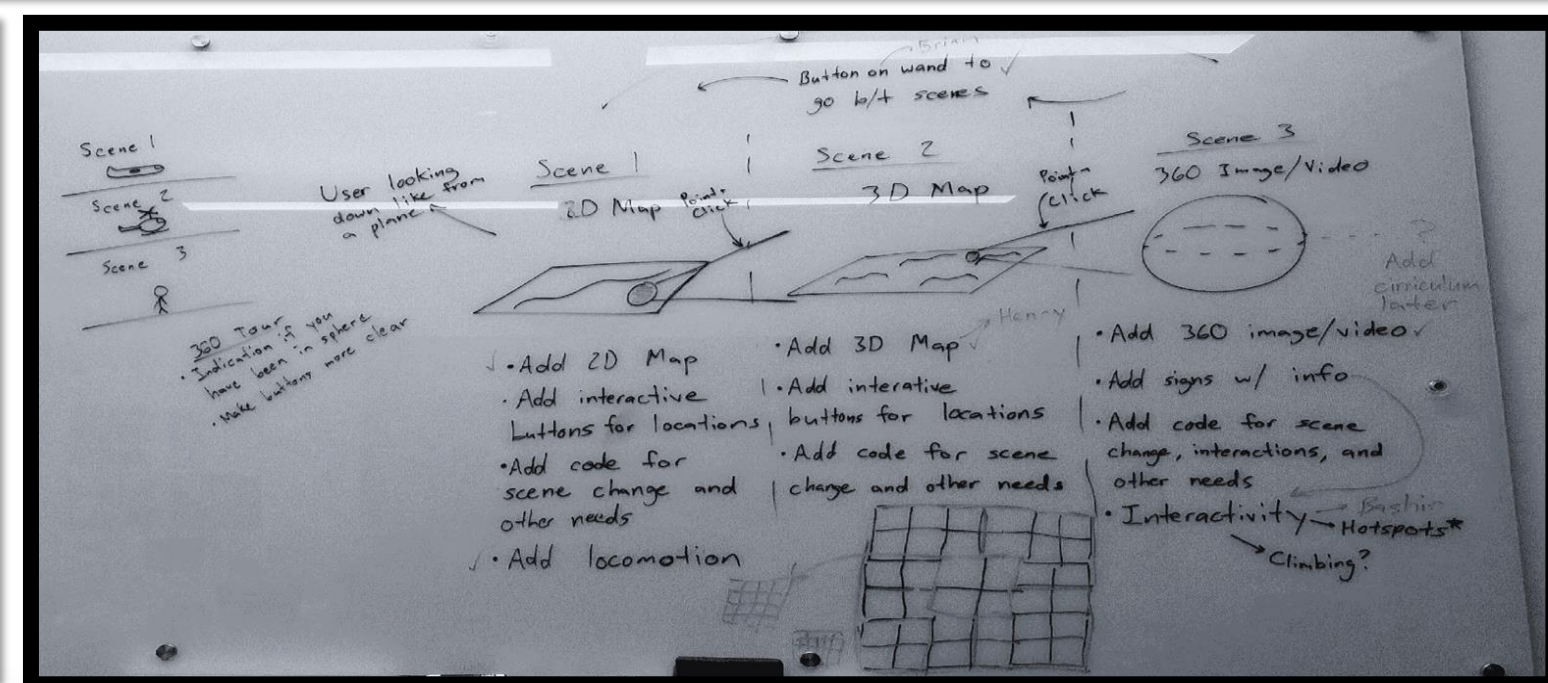 Brian
Button on wand to
go b/t scenes
Scene 1
Scene 2
Scene 3
360 Tour
• Indication if you
have been in sphere
• Make buttons more clear
User looking
down like from
a plane
Scene 1
2D Map
Point +
Click
• Add 2D Map
• Add interactive
buttons for locations
• Add code for
scene change and
other needs
• Add locomotion
Scene 2
3D Map
Point +
Click
Henry
• Add 3D Map
• Add interative
buttons for locations
• Add code for scene
change and other needs
Scene 3
360 Image/Video
?
Add
cirriculum
later
• Add 360 image/video
• Add signs w/ info
• Add code for scene
change, interactions, and
other needs
• Interactivity
Bashir
Hotspots*
Climbing?